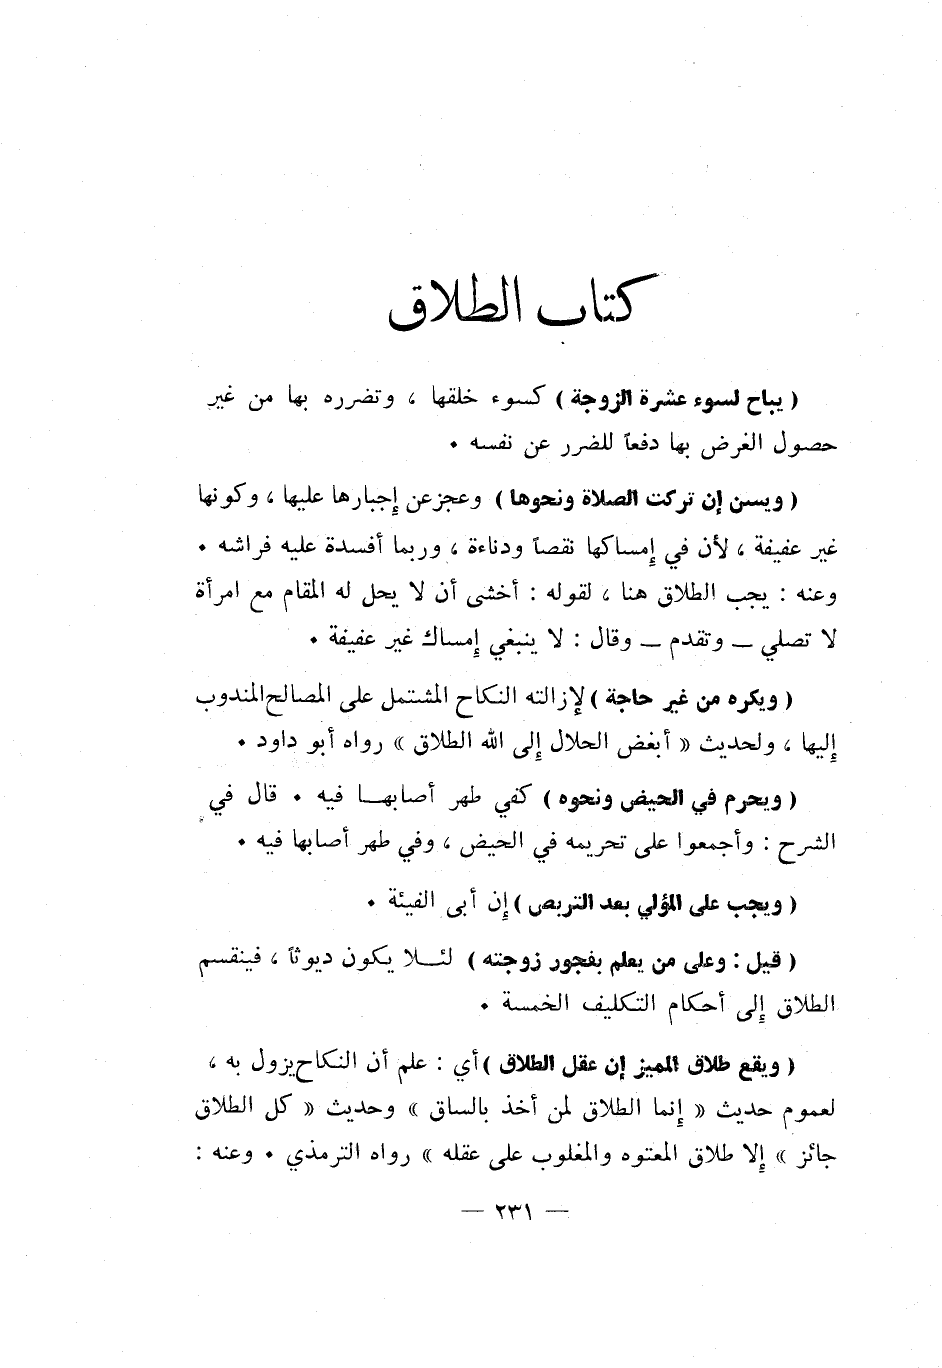 كتاب الطلاق
( يباح لسوء عشرة الزوجة ) كسوء خلقها ، وتضرره بها من غير
حصول الغرض بها دفعاً للضرر عن نفسه .
( ويسن إن تركت الصلاة ونحوها ) وعجز عن إجبارها عليها ، وكونها
غير عفيفة ، لأن في إمساكها نقصاً ودناءة ، وربما أفسدة عليه فراشه .
وعنه : يجب الطلاق هنا ، لقوله : أخشى أن لا يحل له المقام مع امرأة
لا تصلي ــ وتقدم ــ وقال : لا ينبغي إمساك غير عفيفة .
( ويكره من غير حاجة ) لإزالته النكاح المشتمل على المصالح المندوب
إليها ، ولحديث « أبغض الحلال إلى الله الطلاق » رواه أبو داود .
( ويحرم في الحيض ونحوه ) كفي طهر أصابهـا فيه . قال في
الشرح : وأجمعوا على تحريمه في الحيض ، وفي طهر أصابها فيه .
( ويجب على المؤلي بعد التربص ) إن أبى الفيئة .
( قيل : وعلى من يعلم بفجور زوجته ) لئـلا يكون ديوثاً ، فينقسم
الطلاق إلى أحكام التكليف الخمسة .
( ويقع طلاق المميز إن عقل الطلاق ) أي : علم أن النكاح يزول به ،
لعموم حديث « إنما الطلاق لمن أخذ بالساق » وحديث « كل الطلاق
جائز » إلا طلاق المعتوه والمغلوب على عقله » رواه الترمذي . وعنه :
— ٢٣١ —